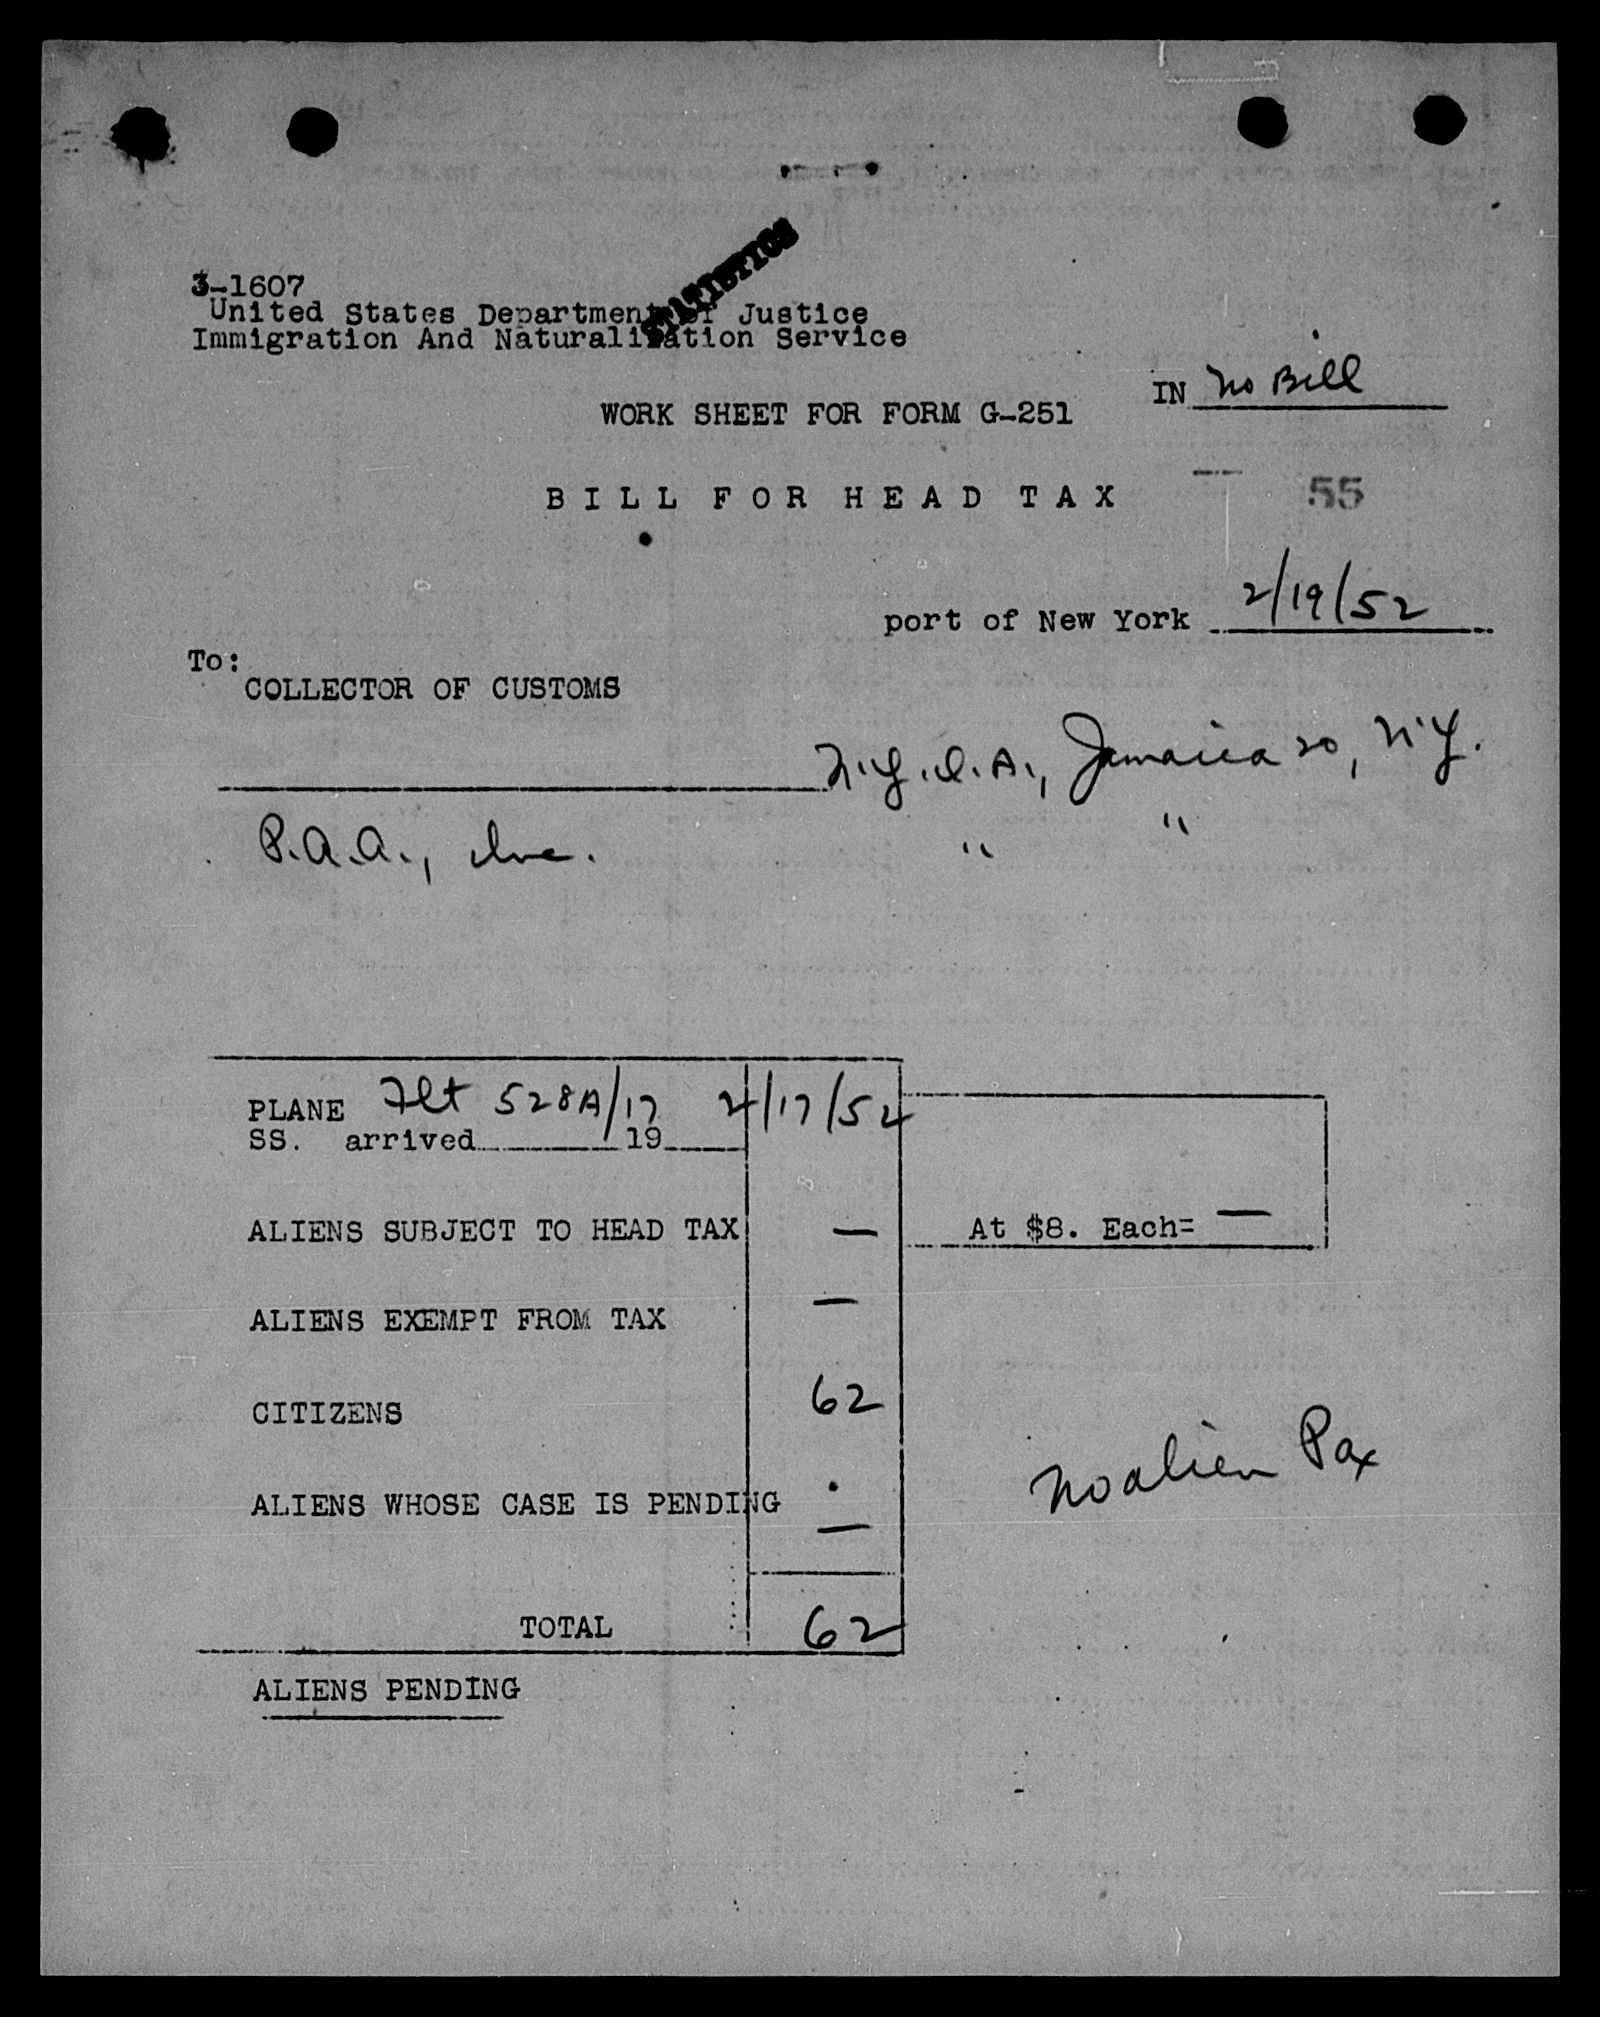 STATISTICS
3-1607
United States Department of Justice
Immigration And Naturalization Service
IN No Bill
WORK SHEET FOR FORM G-251
BILL FOR HEAD TAX
55
port of New York 2/19/52
To:
COLLECTOR OF CUSTOMS
N.Y.I.A., Jamaica 20, N.Y.
P.A.A., Inc. " "
PLANE Flt 528A/17 2/17/52
SS. arrived 19
ALIENS SUBJECT TO HEAD TAX —
At $8. Each= —
ALIENS EXEMPT FROM TAX —
CITIZENS 62
No alien Pax
ALIENS WHOSE CASE IS PENDING —
TOTAL 62
ALIENS PENDING